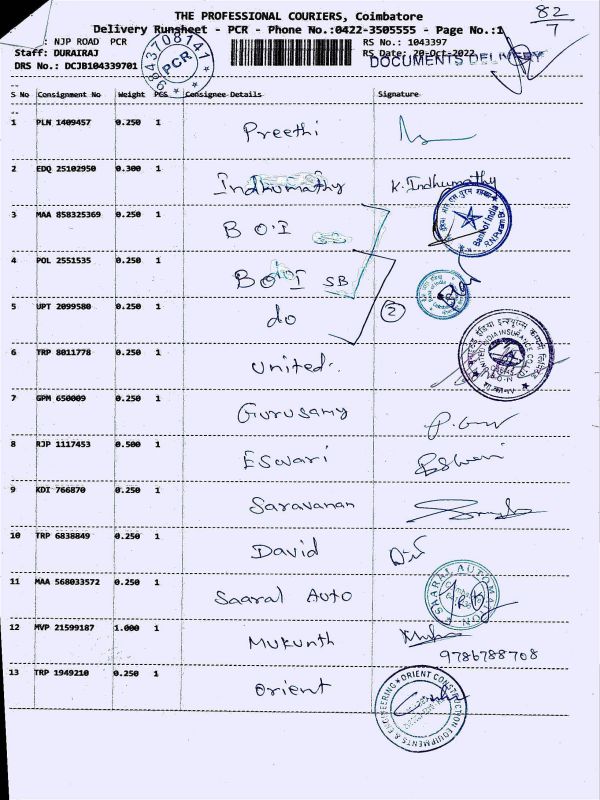 THE PROFESSIONAL COURIERS, Coimbatore
Delivery Runsheet - PCR - Phone No.:0422-3505555 - Page No.:1
82/7
: NJP ROAD PCR
RS No.: 1043397
Staff: DURAIRAJ
RS Date: 20-Oct-2022
DOCUMENTS DELIVERY
DRS No.: DCJB104339701
9843708141
PCR
S No Consignment No Weight PCS Consignee Details Signature
1 PLN 1409457 0.250 1 Preethi
2 EDQ 25102950 0.300 1 Indhumathy K. Indhumathy
3 MAA 858325369 0.250 1 B O.I
Bank of India
R.N.Puram Br.
4 POL 2551535 0.250 1 BOI SB
5 UPT 2099580 0.250 1 do
2
6 TRP 8011778 0.250 1 United
UNITED INDIA INSURANCE CO. LTD.
7 GPM 650009 0.250 1 Gurusamy
8 RJP 1117453 0.500 1 Eswari
9 KDI 766870 0.250 1 Saravanan
10 TRP 6838849 0.250 1 David
11 MAA 568033572 0.250 1 Saaral Auto
SAARAL AUTOMATION
12 MVP 21599187 1.000 1 Mukunth
9786788708
13 TRP 1949210 0.250 1 Orient
ORIENT CONSTRUCTION EQUIPMENTS & ENGINEERING